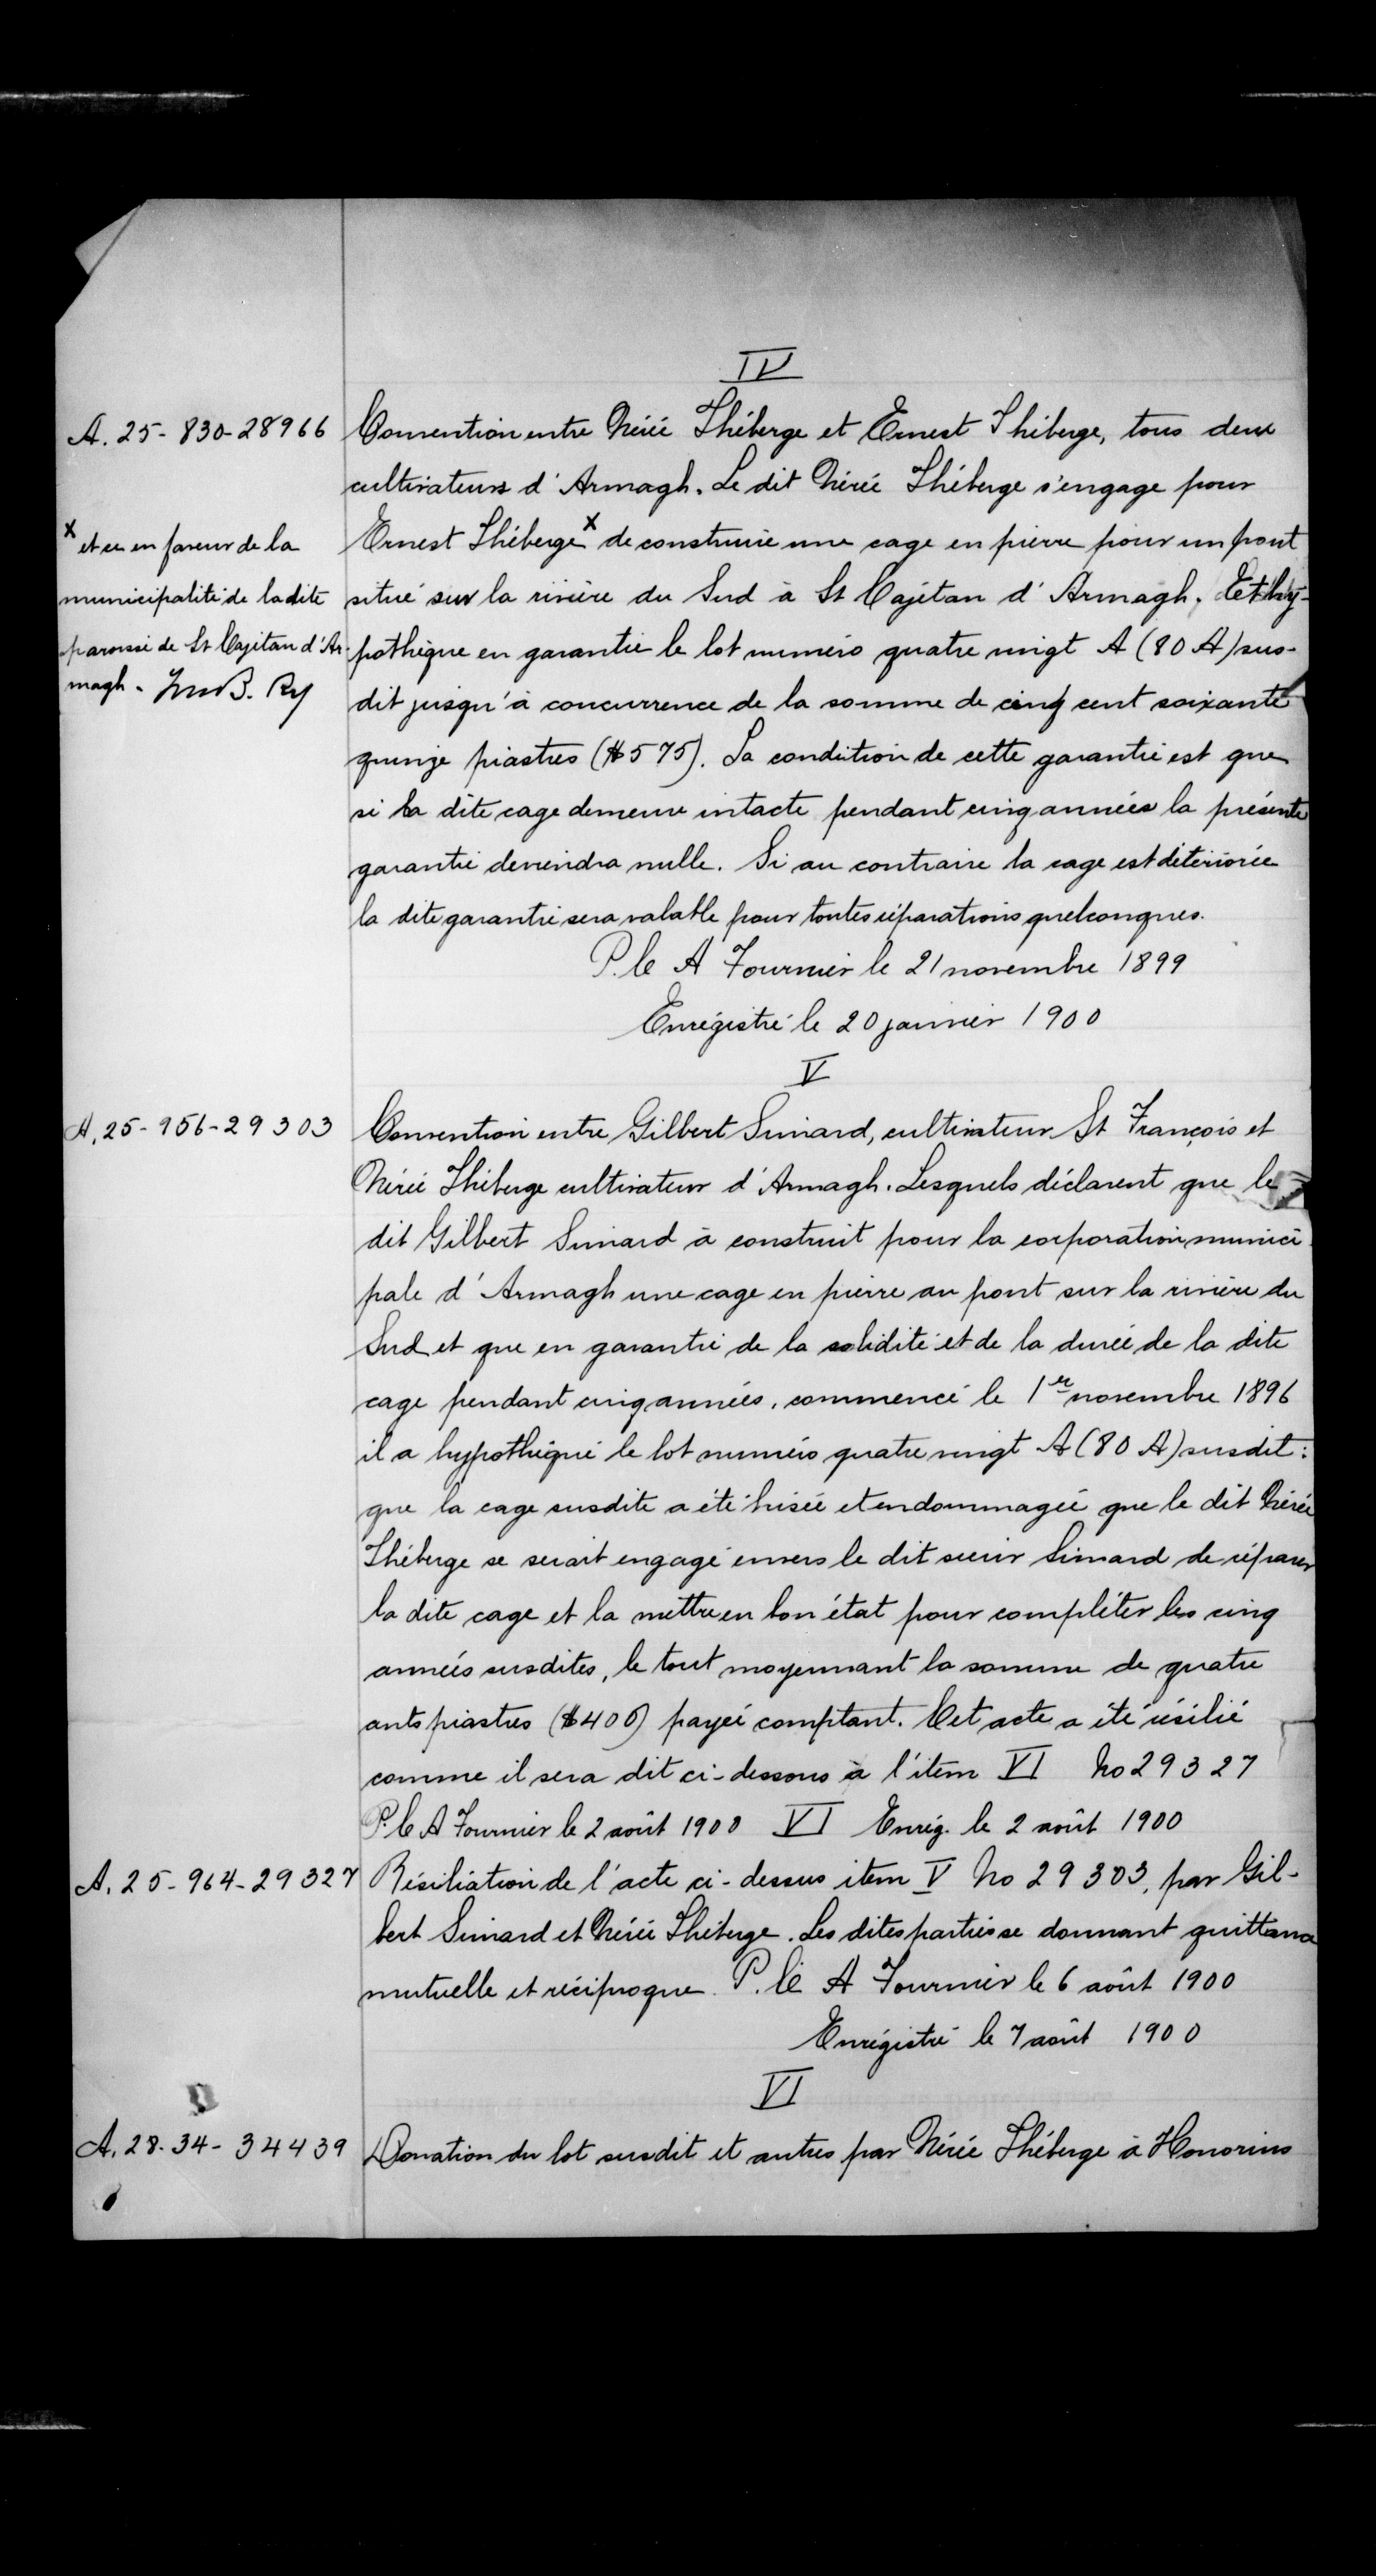 IV
A. 25-830-28966 Convention entre Nérée Théberge et Ernest Théberge, tous deux
cultivateurs d'Armagh. Le dit Nérée Théberge s'engage pour
Ernest Théberge x de construire une cage en pierre pour un pont
x et ce en faveur de la
municipalité de la dite
paroisse de St Cajetan d'Ar-
magh.
situé sur la rivière du Sud à St Cajétan d'Armagh. Et hy-
pothèque en garantie le lot numéro quatre vingt A (80 A) sus-
dit jusqu'à concurrence de la somme de cinq cent soixante
quinze piastres ($575). La condition de cette garantie est que
si la dite cage demeure intacte pendant cinq années la présente
garantie deviendra nulle. Si au contraire la cage est détériorée
la dite garantie sera valable pour toutes réparations quelconques.
P. C A Fournier le 21 novembre 1899
Enrégistré le 20 janvier 1900
V
A. 25-956-29303 Convention entre Gilbert Simard, cultivateur St François et
Nérée Théberge cultivateur d'Armagh. Lesquels déclarent que le
dit Gilbert Simard à construit pour la corporation munici
pale d'Armagh une cage en pierre au pont sur la rivière du
Sud et que en garantie de la solidité et de la durée de la dite
cage pendant cinq années, commencé le 1er novembre 1896
il a hypothéqué le lot numéro quatre vingt A (80 A) susdit:
que la cage susdite a été brisée et endommagée que le dit Nérée
Théberge se serait engagé envers le dit sieur Simard de réparer
la dite cage et la mettre en bon état pour compléter les cinq
années susdites, le tout moyennant la somme de quatre
cents piastres ($400) payée comptant. Cet acte a été résilié
comme il sera dit ci-dessous à l'item VI No 29327
P. C A Fournier le 2 août 1900 VI Enrég. le 2 août 1900
A. 25-964-29327 Résiliation de l'acte ci-dessus item V No 29303, par Gil-
bert Simard et Nérée Théberge. Les dites parties se donnant quittance
mutuelle et réciproque. P. C A Fournier le 6 août 1900
Enrégistré le 7 août 1900
VI
A. 28-34-34439 Donation du lot susdit et autres par Nérée Théberge à Honorius